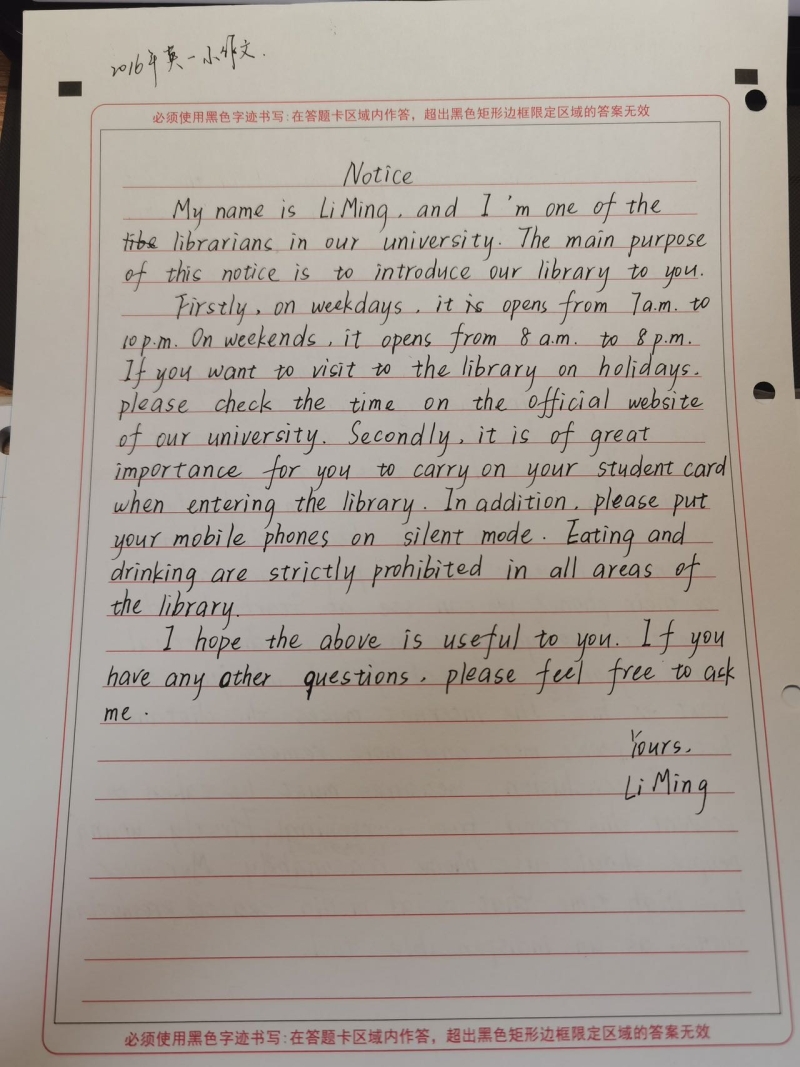 2016年英一小作文.
必须使用黑色字迹书写:在答题卡区域内作答，超出黑色矩形边框限定区域的答案无效
Notice
My name is Li Ming, and I'm one of the
libe librarians in our university. The main purpose
of this notice is to introduce our library to you.
Firstly, on weekdays, it is opens from 7a.m. to
10 p.m. On weekends, it opens from 8 a.m. to 8 p.m.
If you want to visit to the library on holidays,
please check the time on the official website
of our university. Secondly, it is of great
importance for you to carry on your student card
when entering the library. In addition, please put
your mobile phones on silent mode. Eating and
drinking are strictly prohibited in all areas of
the library.
I hope the above is useful to you. If you
have any other questions, please feel free to ask
me.
Yours,
Li Ming
必须使用黑色字迹书写:在答题卡区域内作答，超出黑色矩形边框限定区域的答案无效